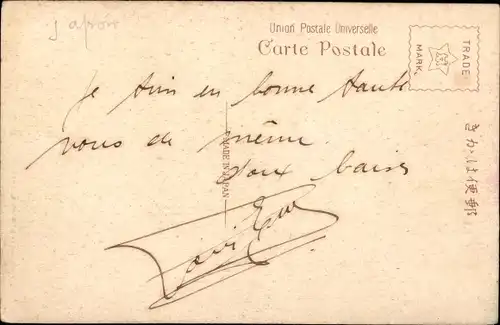 Japon
Union Postale Universelle
Carte Postale
TRADE
MARK.
Je suis en bonne santé
vous de même
doux baiser
MADE IN JAPAN
きかは便郵